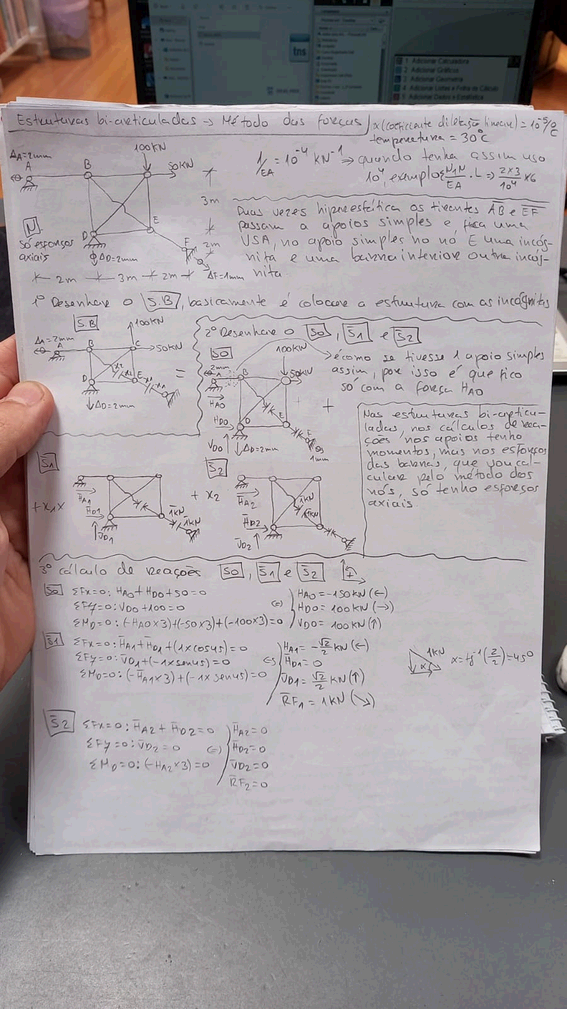 Estruturas bi-articuladas → Método das forças
α (coeficiente dilatação linear) = 10⁻⁵/°C
temperatura = 30°C
ΔA=2mm
A
B
100KN
50KN
D
E
F
3m
2m
ΔD=2mm
ΔF=1mm
N
só esforços
axiais
2m 3m 2m
1/EA = 10⁻⁴ KN⁻¹ → quando tenha assim uso
Duas vezes hiperestática os tirantes AB e EF
passam a apoios simples e, fica uma
VSA, no apoio simples no nó E uma incóg-
nita e uma barra interior outra incóg-
nita
1º Desenhar o S.B, basicamente é colocar a estrutura com as incógnitas
S.B
ΔA=2mm
A
B
C
100KN
50KN
D
E
ΔD=2mm
=
2º Desenhar o S0, S̄1 e S̄2
S0
2mm
100KN
50KN
B
D
E
HA0
HD0
VD0
ΔD=2mm
1mm
é como se tivesse 1 apoio simples
assim, por isso é que fico
só com a força HA0
+
Nas estruturas bi-articu-
ladas, nos cálculos de rea-
ções nos apoios tenho
momentos, mas nos esforços
das barras, que vou cal-
cular pelo método dos
nós, só tenho esforços
axiais
S̄1
+ x1 x
H̄A1
H̄D1
V̄D1
1KN
1KN
+ x2
S̄2
H̄A2
H̄D2
V̄D2
1KN
1KN
3º cálculo de reações S0, S̄1 e S̄2
S0 ΣFx=0: HA0+HD0+50=0
ΣFy=0: VD0+100=0
ΣMD=0: (-HA0x3)+(-50x3)+(-100x3)=0
(=)
HA0=-150KN (←)
HD0=100KN (→)
VD0=100KN (↑)
S̄1 ΣFx=0: H̄A1+H̄D1+(1xcos45)=0
ΣFy=0: V̄D1+(-1xsen45)=0
ΣMD=0: (-H̄A1x3)+(-1xsen45)=0
(=)
H̄A1=-√2/2 KN (←)
H̄D1=0
V̄D1=√2/2 KN (↑)
R̄F1=1KN (↘)
1KN
α
α=tg⁻¹(2/2)=45°
S̄2 ΣFx=0: H̄A2+H̄D2=0
ΣFy=0: V̄D2=0
ΣMD=0: (-HA2x3)=0
(=)
H̄A2=0
H̄D2=0
V̄D2=0
R̄F2=0
1 Adicionar Calculadora
2 Adicionar Gráficos
3 Adicionar Geometria
4 Adicionar Listas e Folha de Cálculo
5 Adicionar Dados e Estatística